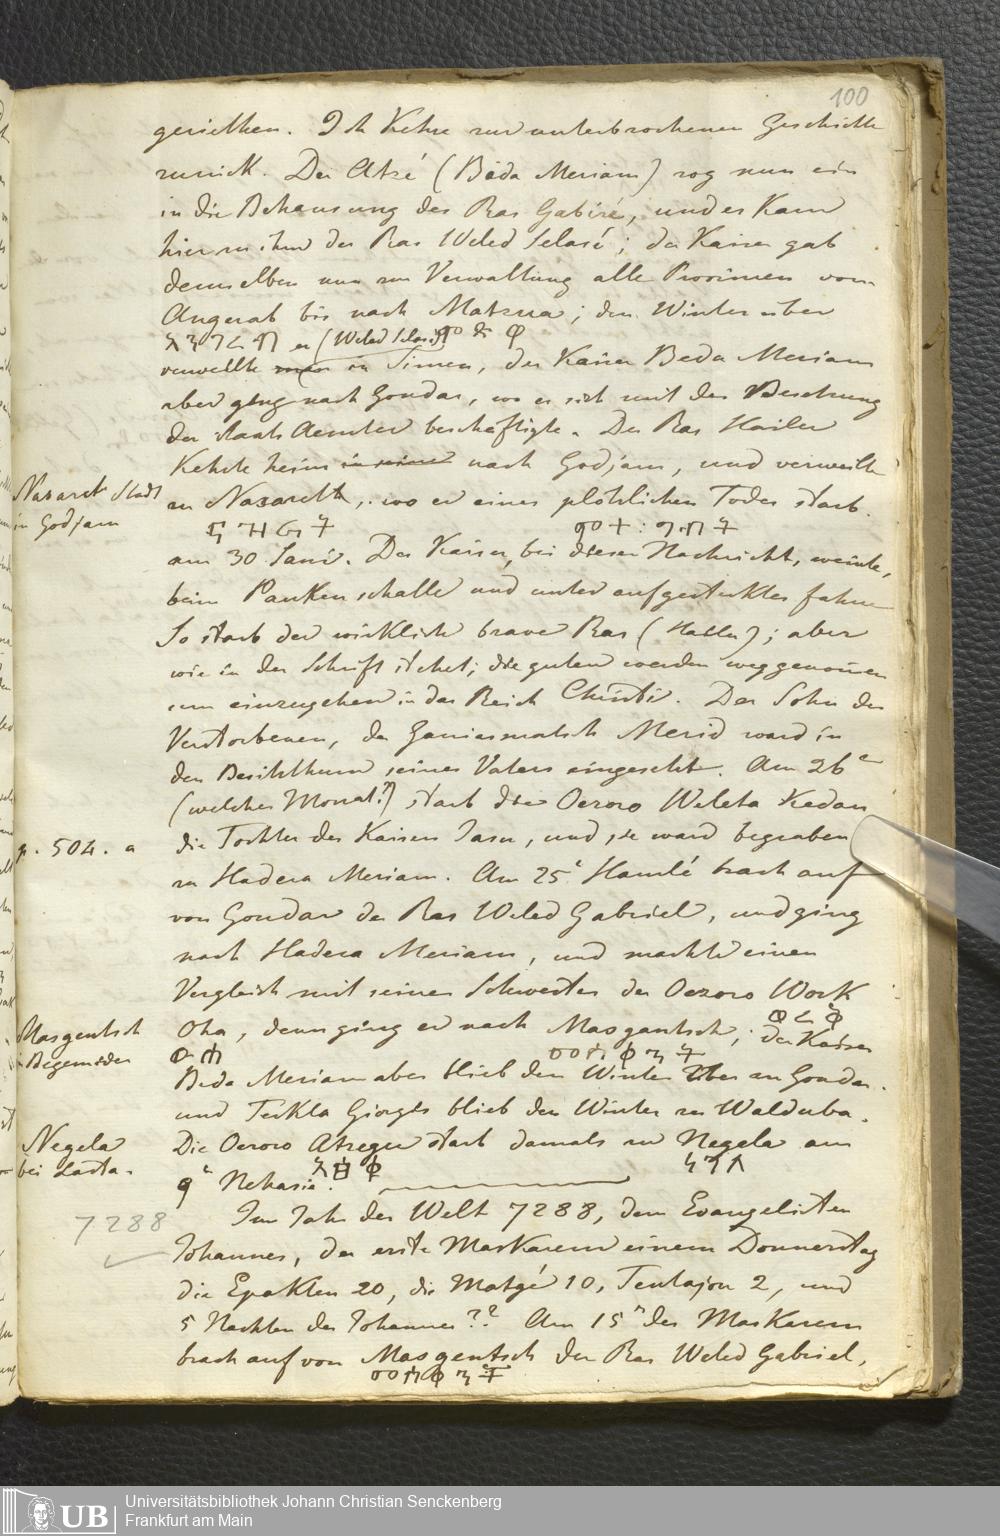 100
geriethen. Ich Kehre zur unterbrochenen Geschichte
zurück. Der Atzé (Bëda Meriam) zog nun ein
in die Behausung des Ras Gabiré, und es Kam
hier zu ihm der Ras Weled Selasé; der Kaiser gab
demselben nun zur Verwaltung alle Provinzen vom
Angerab bis nach Matzua; den Winter über
አንገረብ er (Weled Selasé) ምጽዋ
verweilte in Simen, der Kaiser Beda Meriam
aber ging nach Gondar, wo er sich mit der Besetzung
der Staats Aemter beschäftigte. Der Ras Hailu
Kehrte heim in seine nach Godjam, und verweilte
Nazaret Stadt
in Godjam
zu Nazareth, wo er eines plötzlichen Todes starb.
ናዝሬት
am 30 Sané. Der Kaiser, bei dieser Nachricht, weinte,
beim Paukenschalle und unter aufgesteckter Fahne
So starb der wirklich brave Ras (Hailu); aber
wie in der Schrift stehet; die guten werden weggenom̄en
um einzugehen in das Reich Christi. Der Sohn des
Verstorbenen, der Merid ward in
den Besitzthum seines Vaters eingesetzt. Am 26
(welches Monat?) starb die Oezoro Weleta Kedan
p. 504. a
die Tochter des Kaisers Jasu, und sie ward begraben
zu Hadera Meriam. Am 25 Hamlé brach auf
von Gondar der Ras Weled Gabriel, und ging
nach Hadera Meriam, und machte einen
Vergleich mit seiner Schwester der Oezoro Work
Masgentsch
in Begemeder
Oha, dann ging er nach Masgantsch; der Kaiser
Beda Meriam aber blieb den Winter über zu Gondar.
und Teckla Giorgis blieb den Winter zu Waldubba.
Negela
bei Lasta.
Die Oezoro Atzegu starb damals zu Negela am
9 Nehasie.
7288
Im Jahr der Welt 7288, dem Evangelisten
Johannes, der erste Maskarem einem Donnerstag
die Epakten 20, die Matgé 10, Tentajon 2, und
5 Nachten des Johannes?? Am 15n des Maskarem
brach auf von Masgentsch der Ras Weled Gabriel,
UB
Universitätsbibliothek Johann Christian Senckenberg
Frankfurt am Main